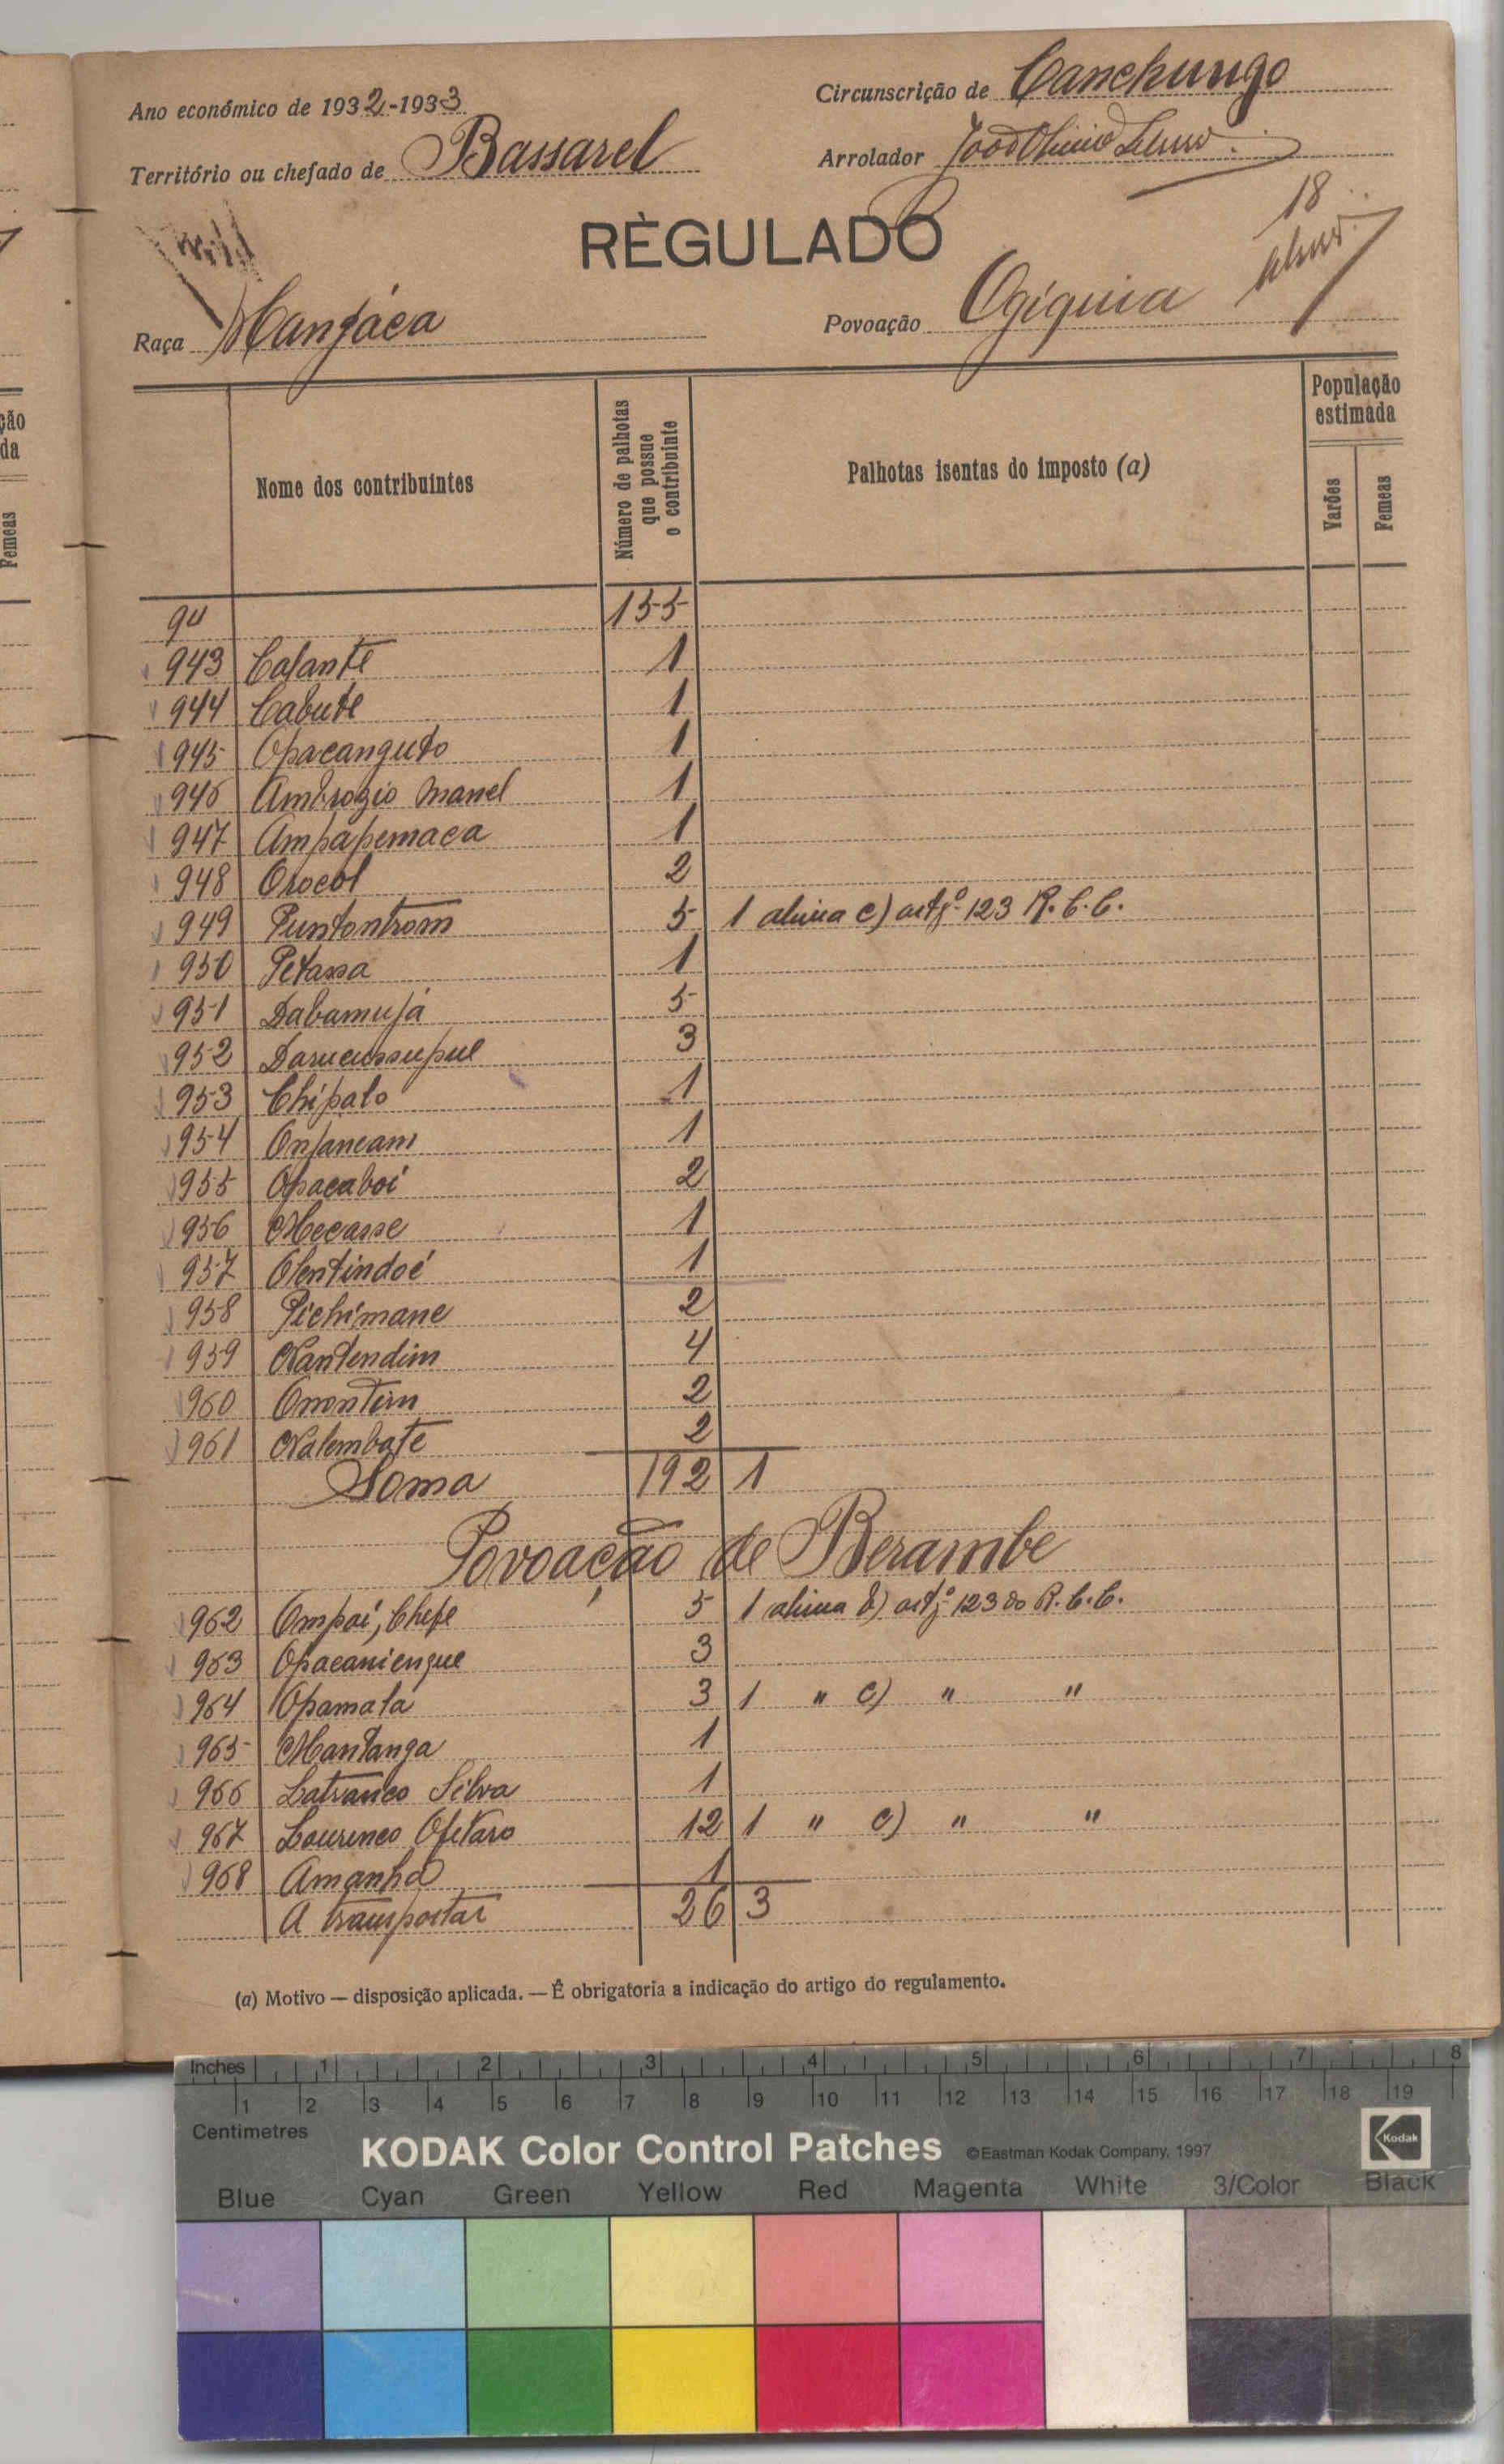 Ano económico de 1932-1933
Circunscrição de Canchungo
Território ou chefado de Bassarel
Arrolador
18
REGULADO
Raça Manjáca
Povoação Ogiquia
Nome dos contribuintes
Número de palhotas que possue o contribuinte
Palhotas isentas do imposto (a)
População estimada
Varões
Femeas
94 155
943 Calante 1
944 Cabute 1
945 Opacanguto 1
946 Ambrozio Manel 1
947 Ampapemaca 1
948 Orocol 2
949 Puntontrom 5 1 alinea c) artgº 123 R.C.C.
950 Petassa 1
951 Dabamujá 5
952 Darucussupul 3
953 Chipalo 1
954 Onjancam 1
955 Opacaboi 2
956 Mecasse 1
957 Olentindoé 1
958 Pichimane 2
959 Nantendim 4
960 Omontim 2
961 Nalembate 2
Soma 192 1
Povoação de Berambe
962 Ompoí, Chefe 5 1 alinea b) artgº 123 do R.C.C.
963 Opacaniengue 3
964 Opamala 3 1 " c) " "
965 Mantanga 1
966 Latranco Silva 1
967 Lourenco Ofetaro 12 1 " c) " "
968 Amanhã 1
A transportar 26 3
(a) Motivo — disposição aplicada. — É obrigatoria a indicação do artigo do regulamento.
ção
da
Femeas
Inches 1 2 3 4 5 6 7 8
1 2 3 4 5 6 7 8 9 10 11 12 13 14 15 16 17 18 19
Centimetres
KODAK Color Control Patches ©Eastman Kodak Company, 1997 Kodak
Blue Cyan Green Yellow Red Magenta White 3/Color Black